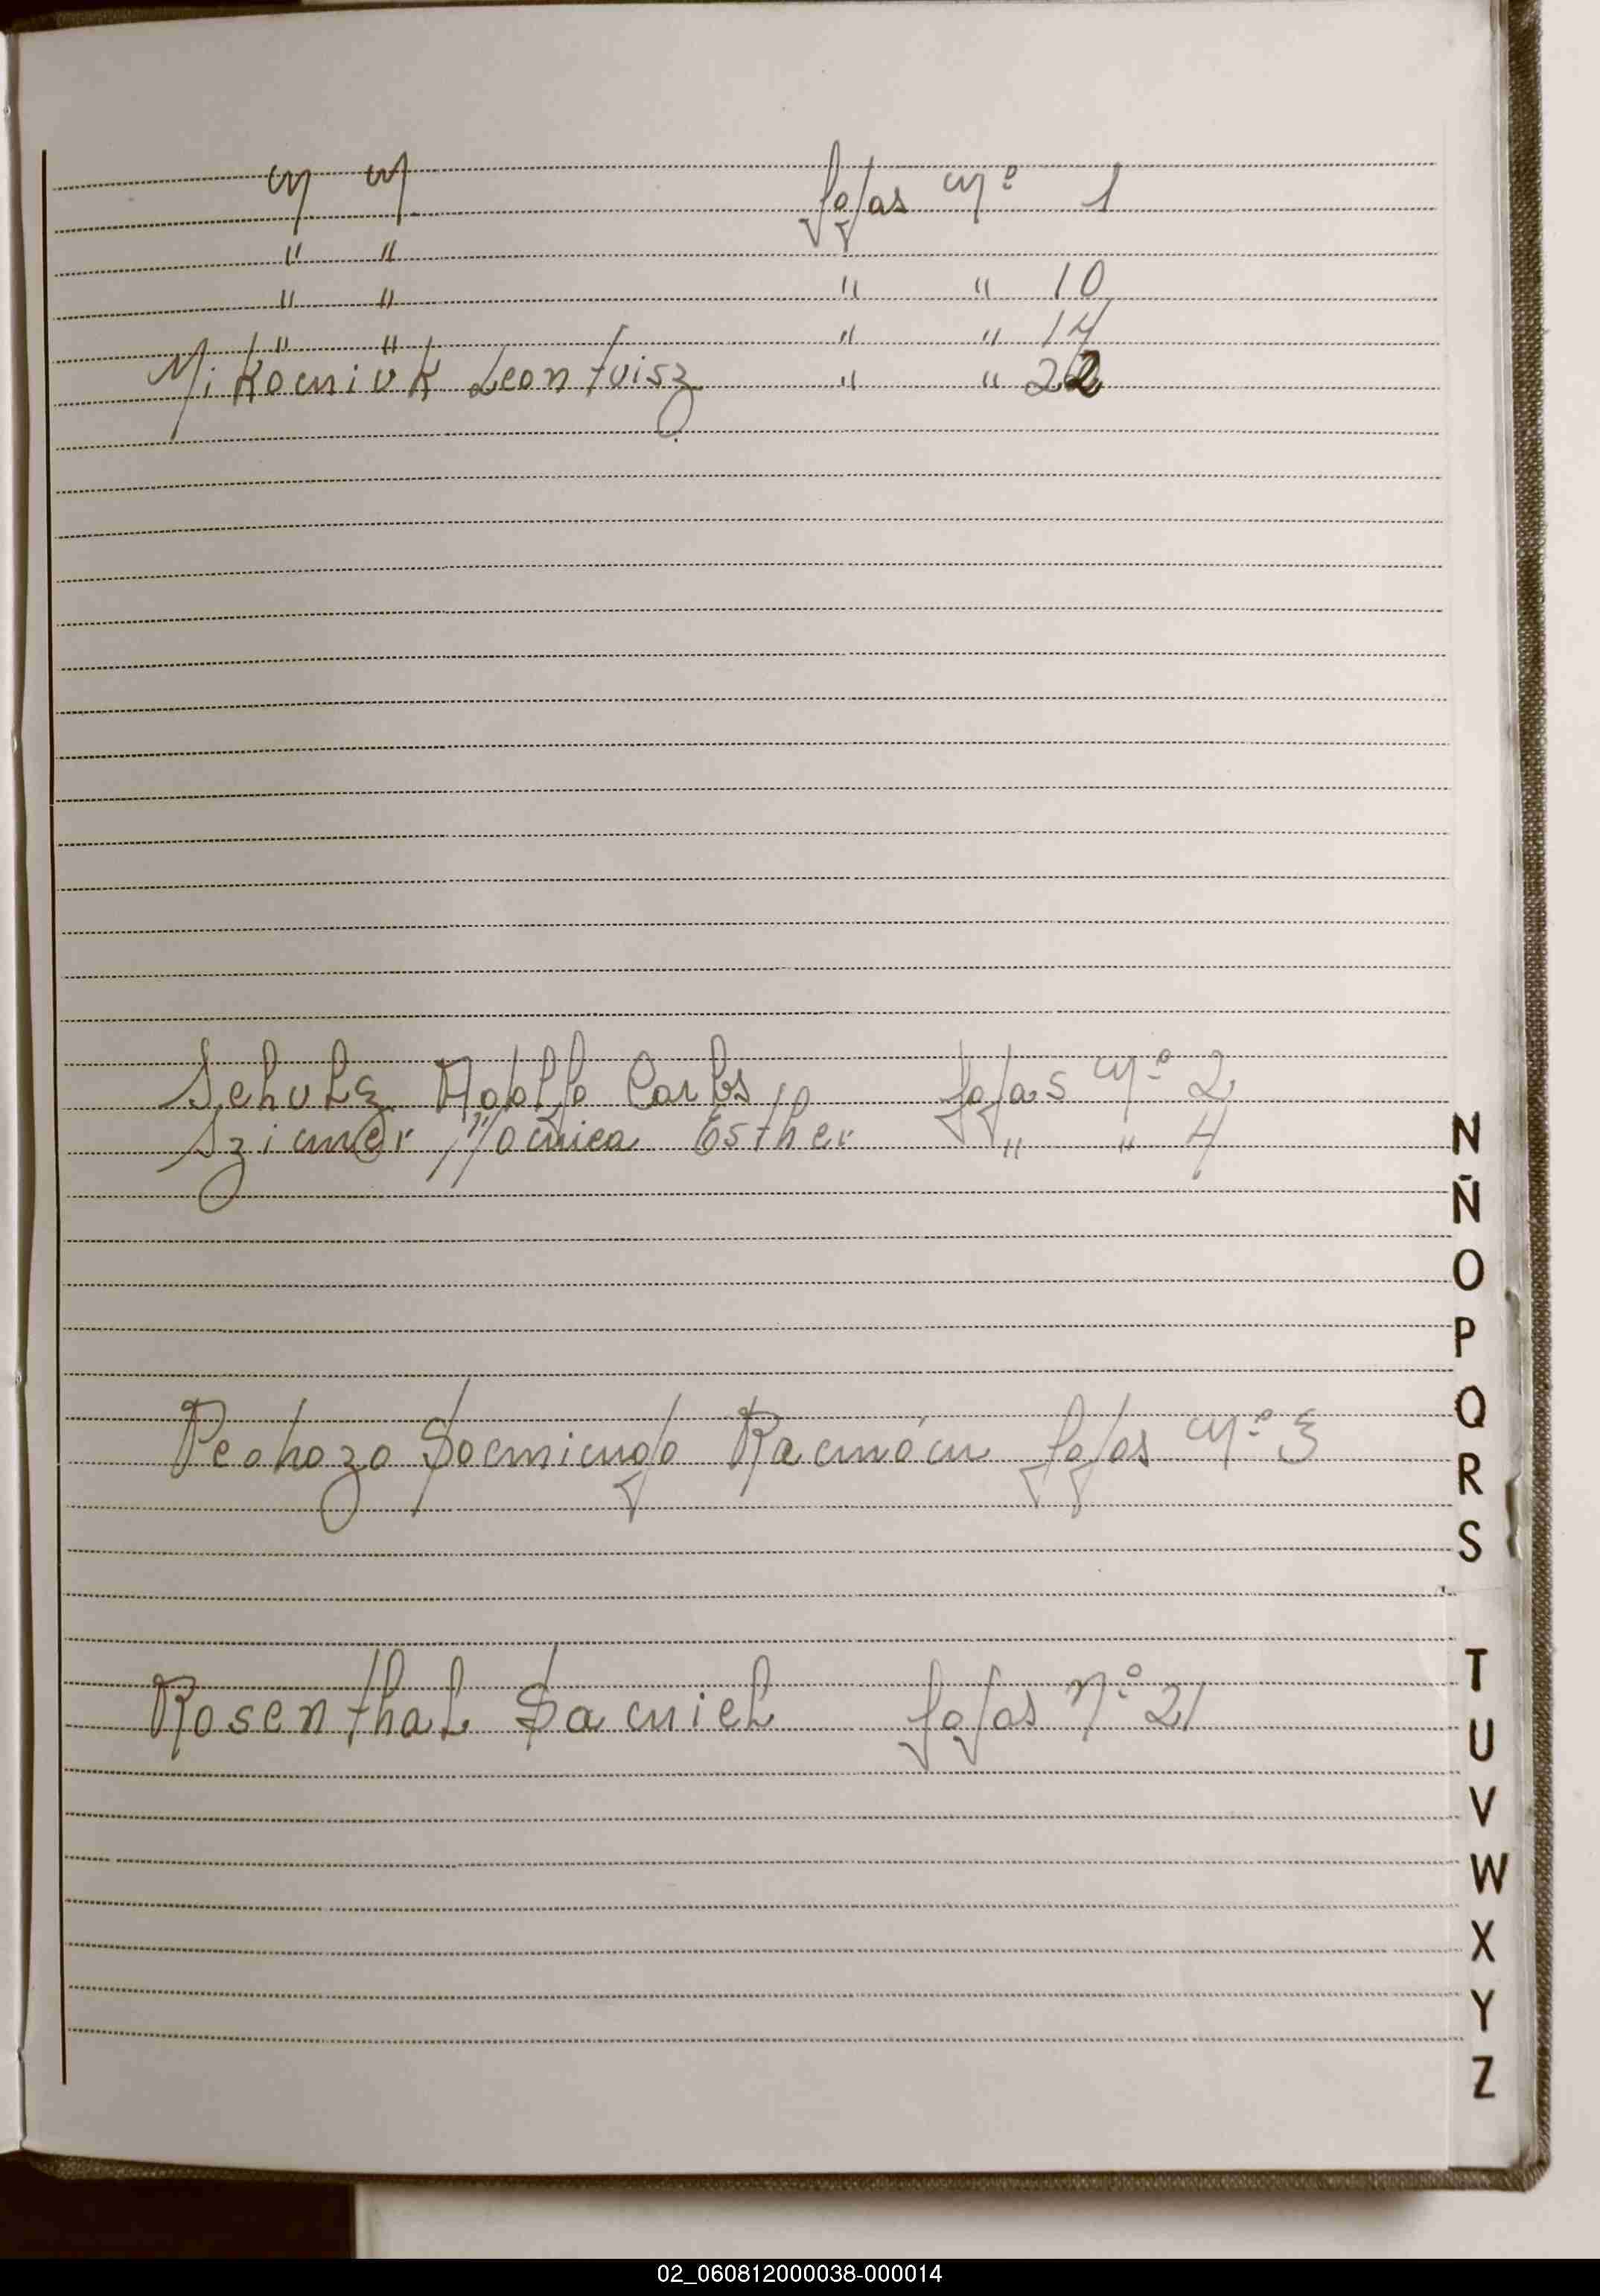 N N fojas N° 1
" "
" " " " 10
" " " " 14
Mikoniuk Leontuisz " " 22
Schulz Adolfo Carlos fojas N° 2
Sziener Mónica Esther " " 4
Pedrozo Domingo Ramón fojas N° 3
Rosenthal Daniel fojas N° 21
N
Ñ
O
P
Q
R
S
T
U
V
W
X
Y
Z
02_060812000038-000014